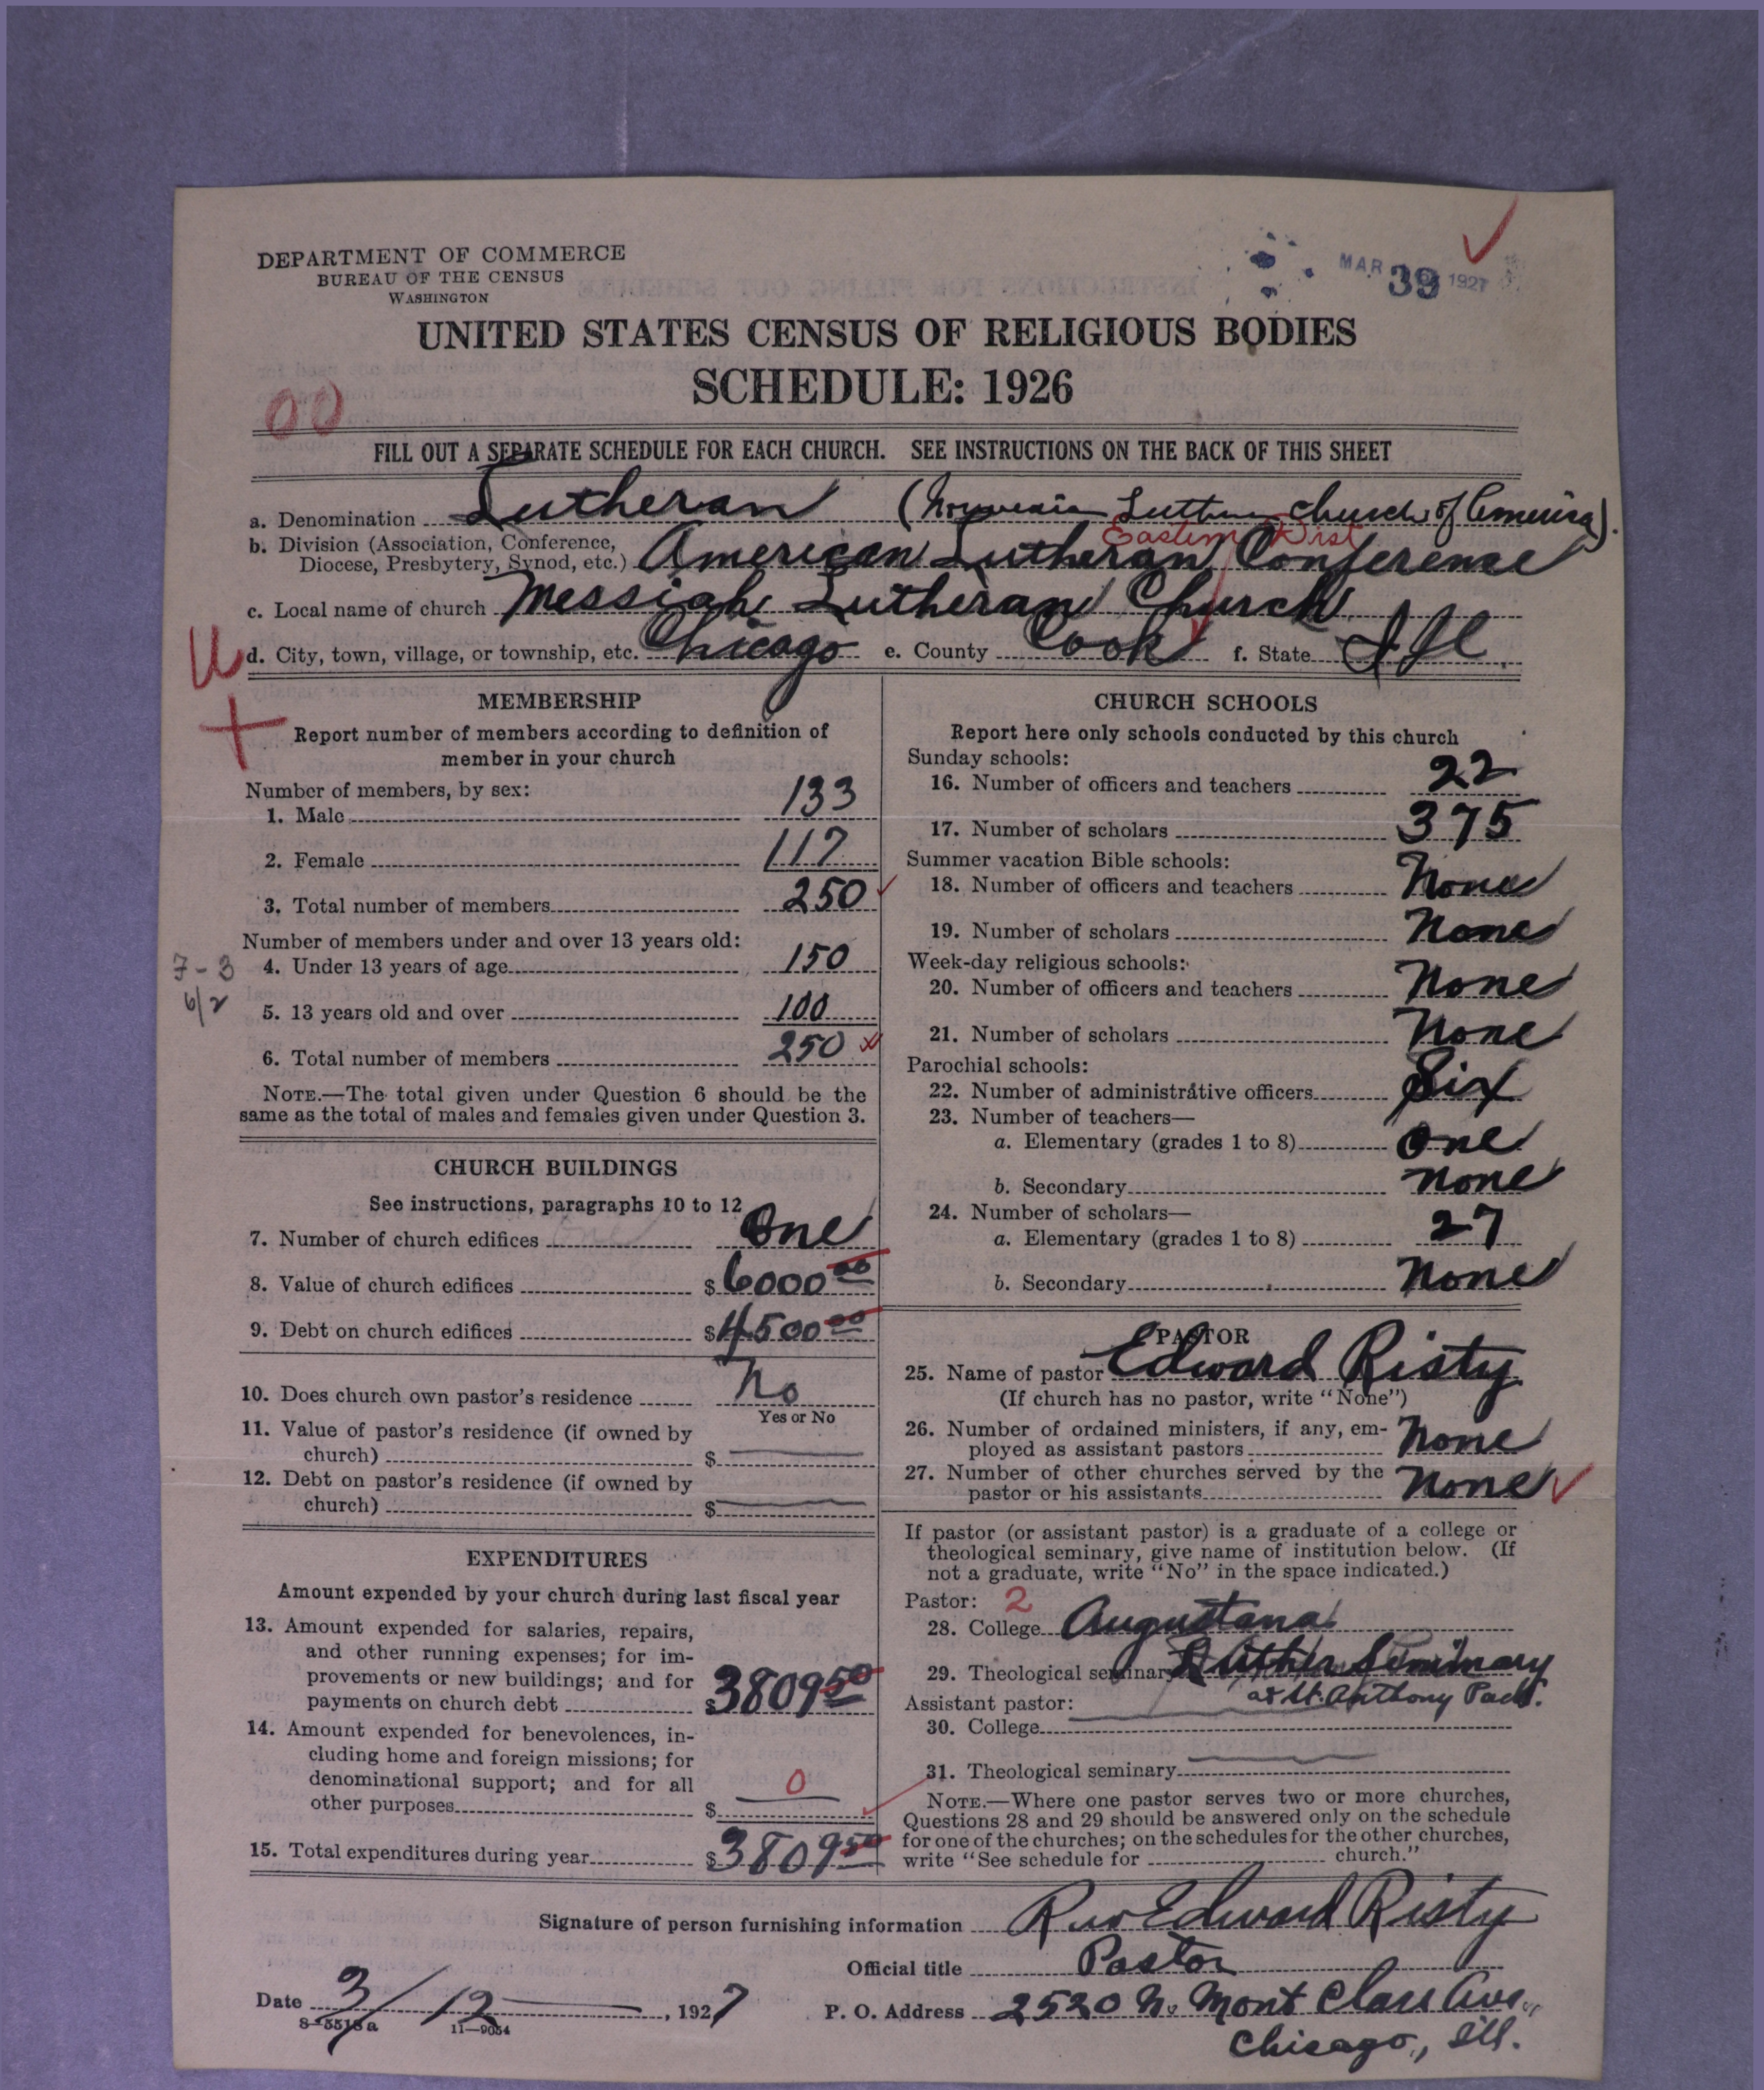 DEPARTMENT OF COMMERCE
BUREAU OF THE CENSUS
WASHINGTON
MAR 39 1927
UNITED STATES CENSUS OF RELIGIOUS BODIES
SCHEDULE: 1926
00
FILL OUT A SEPARATE SCHEDULE FOR EACH CHURCH. SEE INSTRUCTIONS ON THE BACK OF THIS SHEET
a. Denomination Lutheran (Norwegian Lutheran Church of America).
Eastern Dist
b. Division (Association, Conference, Diocese, Presbytery, Synod, etc.) American Lutheran Conference
c. Local name of church Messiah Lutheran Church
U d. City, town, village, or township, etc. Chicago e. County Cook f. State Ill.
MEMBERSHIP
Report number of members according to definition of
member in your church
Number of members, by sex:
1. Male 133
2. Female 117
3. Total number of members 250
Number of members under and over 13 years old:
7-3 4. Under 13 years of age 150
6/2
5. 13 years old and over 100
6. Total number of members 250
NOTE.—The total given under Question 6 should be the
same as the total of males and females given under Question 3.
CHURCH BUILDINGS
See instructions, paragraphs 10 to 12
7. Number of church edifices One
8. Value of church edifices $6000 00
9. Debt on church edifices $4500 00
10. Does church own pastor's residence No
Yes or No
11. Value of pastor's residence (if owned by
church) $
12. Debt on pastor's residence (if owned by
church) $
EXPENDITURES
Amount expended by your church during last fiscal year
13. Amount expended for salaries, repairs,
and other running expenses; for im-
provements or new buildings; and for
payments on church debt $3809 50
14. Amount expended for benevolences, in-
cluding home and foreign missions; for
denominational support; and for all
0
other purposes $
15. Total expenditures during year $3809 50
CHURCH SCHOOLS
Report here only schools conducted by this church
Sunday schools:
16. Number of officers and teachers 22
17. Number of scholars 375
Summer vacation Bible schools:
18. Number of officers and teachers None
19. Number of scholars None
Week-day religious schools:
20. Number of officers and teachers None
21. Number of scholars None
Parochial schools:
22. Number of administrative officers Six
23. Number of teachers—
a. Elementary (grades 1 to 8) One
b. Secondary None
24. Number of scholars—
a. Elementary (grades 1 to 8) 27
b. Secondary None
PASTOR
25. Name of pastor Edward Risty
(If church has no pastor, write "None")
26. Number of ordained ministers, if any, em-
ployed as assistant pastors None
27. Number of other churches served by the
pastor or his assistants None
If pastor (or assistant pastor) is a graduate of a college or
theological seminary, give name of institution below. (If
not a graduate, write "No" in the space indicated.)
Pastor: 2
28. College Augustana
29. Theological seminary Luther Seminary
at St. Anthony Park.
Assistant pastor:
30. College
31. Theological seminary
NOTE.—Where one pastor serves two or more churches,
Questions 28 and 29 should be answered only on the schedule
for one of the churches; on the schedules for the other churches,
write "See schedule for church."
Signature of person furnishing information Rev Edward Risty
Official title Pastor
Date 3/12, 1927 P. O. Address 2520 N. Mont Clare Ave.
8-5518a 11-9054
Chicago, Ill.